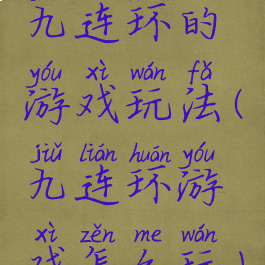 九连环的
yóu xì wán fǎ
游戏玩法(
jiǔ lián huán yóu
九连环游
xì zěn me wán
戏怎么玩)